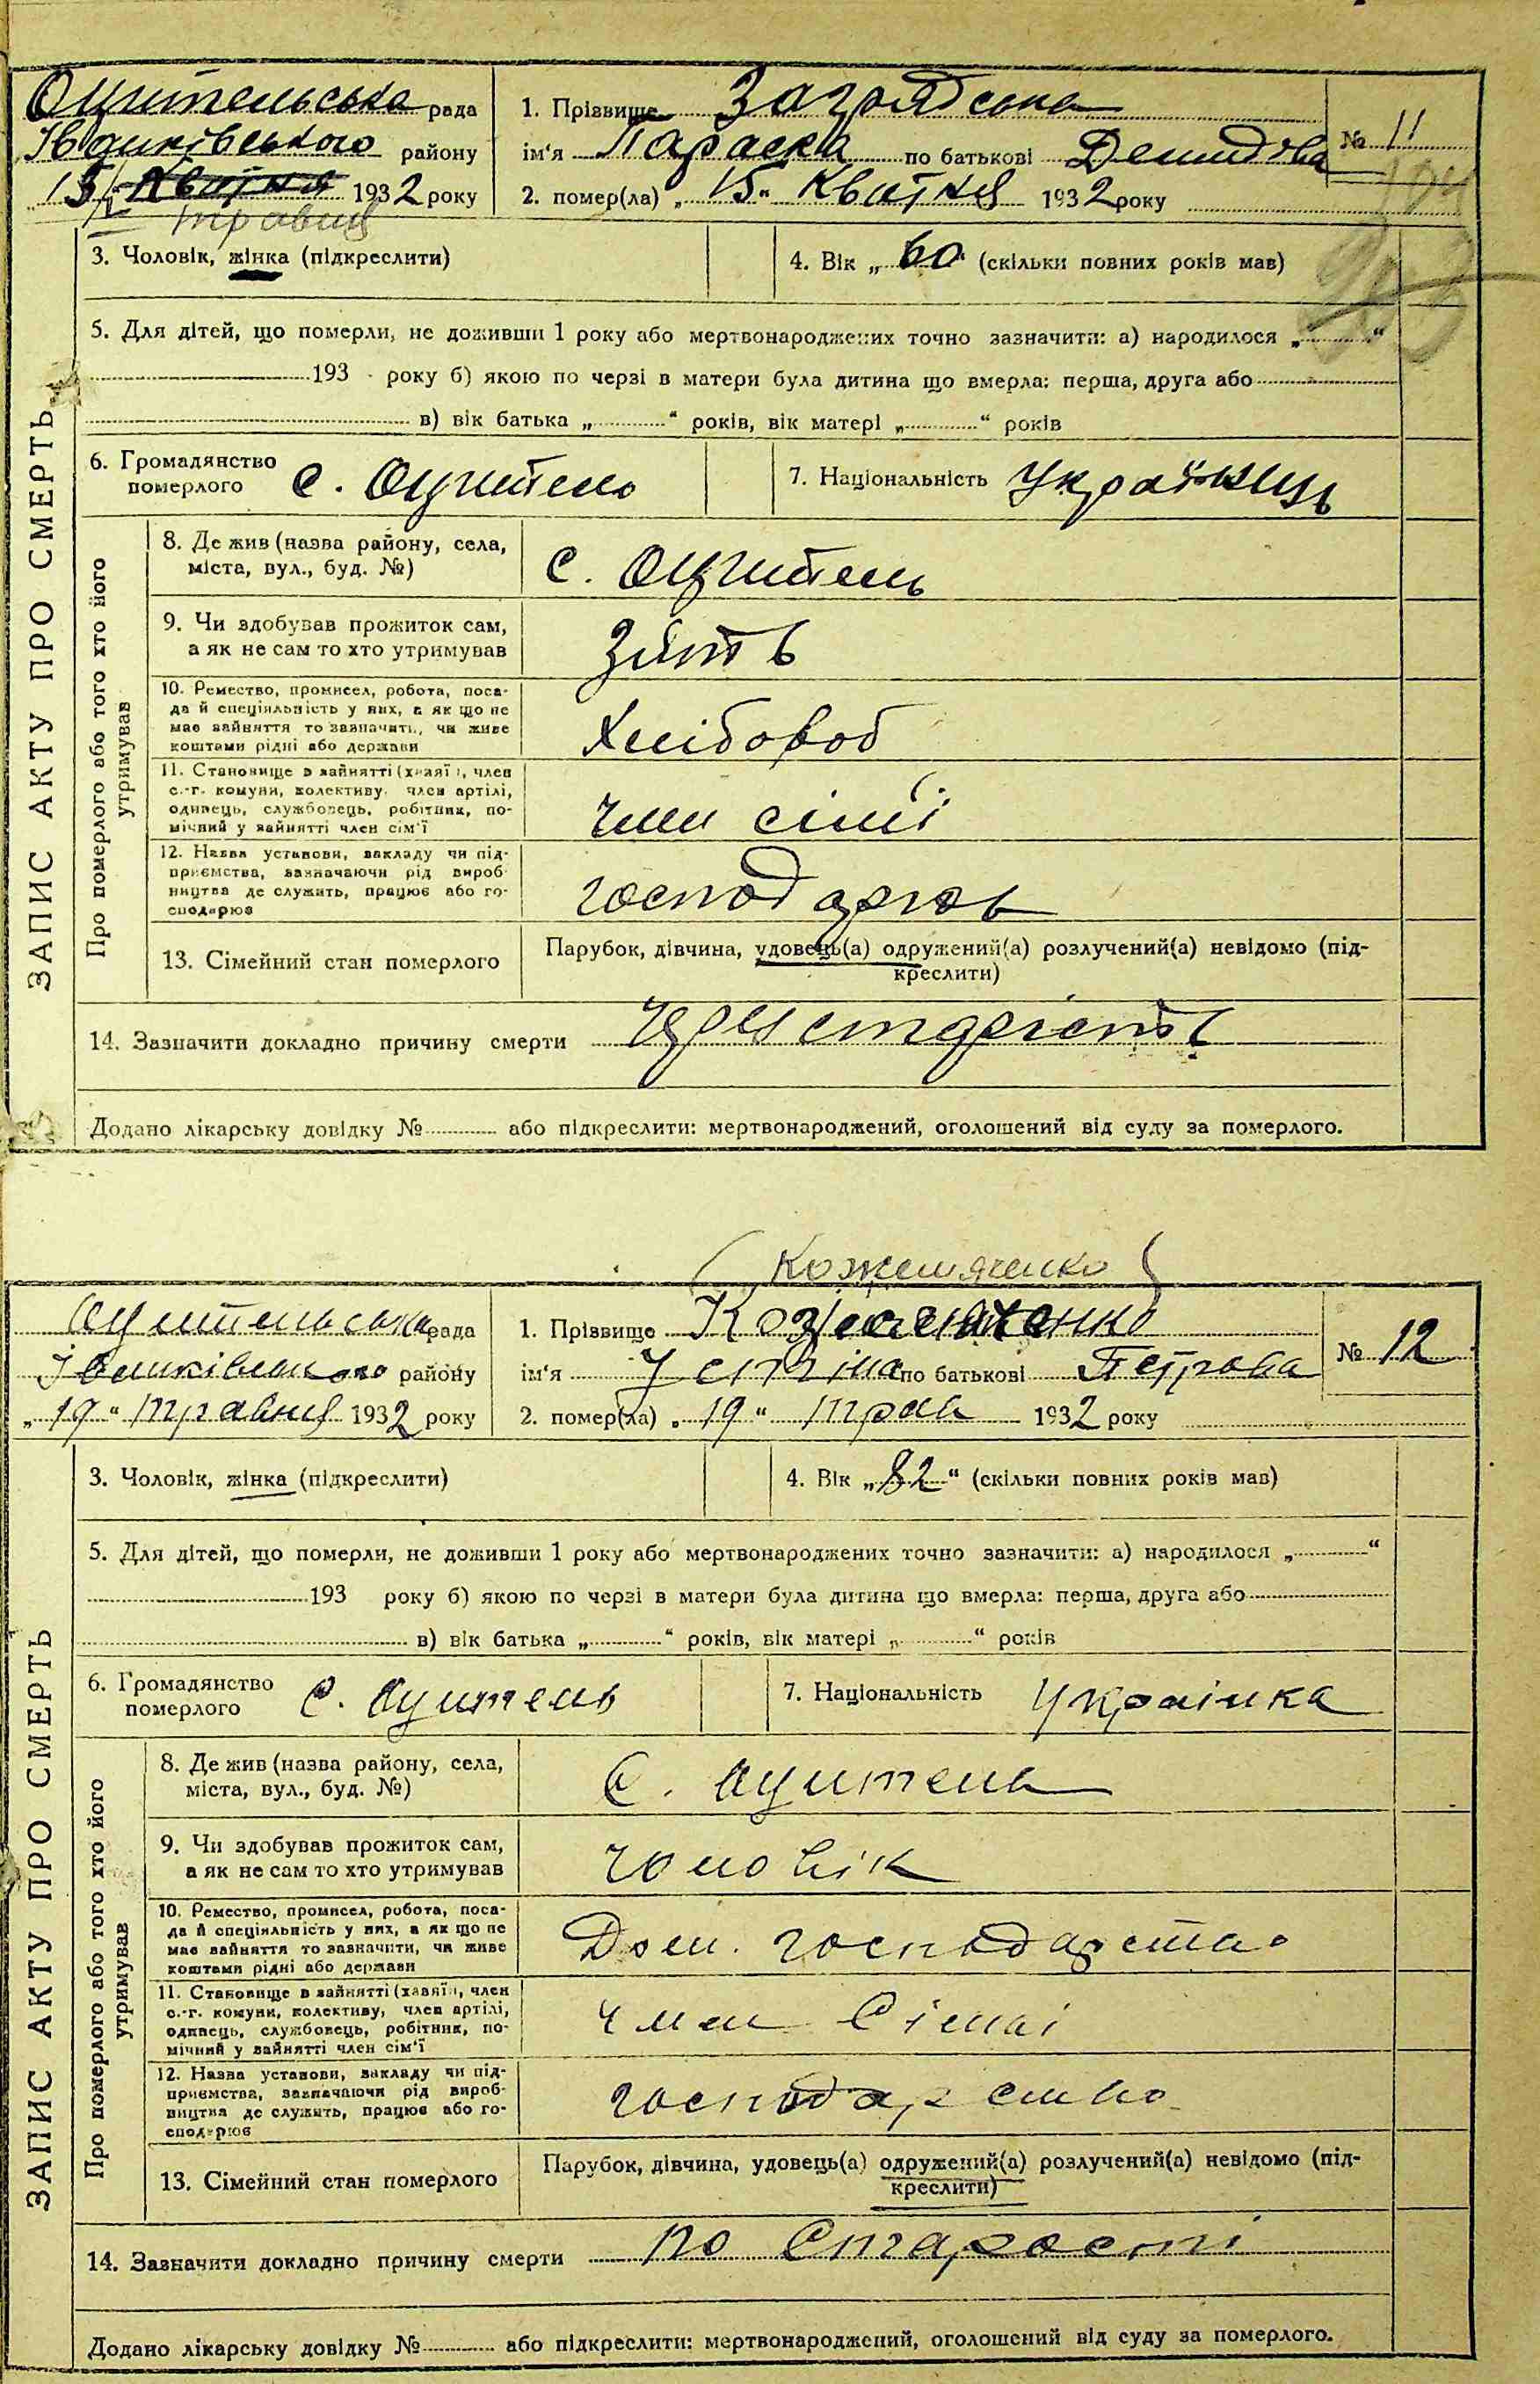 Оцительська рада
Іваньківського району
"15/V квітня 1932 року
травня
1. Прізвище Загрядська
ім'я Параска по батькові Демидова
2. помер(ла) "15" Квітня 1932 року
№ 11
3. Чоловік, жінка (підкреслити)
4. Вік "60" (скільки повних років мав)
5. Для дітей, що померли, не доживши 1 року або мертвонароджених точно зазначити: а) народилося „ “
193 року б) якою по черзі в матери була дитина що вмерла: перша, друга або
в) вік батька „ “ років, вік матері „ “ років
6. Громадянство померлого с. Оцитель
7. Національність Українць
ЗАПИС АКТУ ПРО СМЕРТЬ
Про померлого або того хто його утримував
8. Де жив (назва району, села,
міста, вул., буд. №)
с. Оцитель
9. Чи здобував прожиток сам,
а як не сам то хто утримував
Зять
10. Ремество, промисел, робота, поса-
да й спеціяльність у них, а як що не
має зайняття то зазначить, чи живе
коштами рідні або держави
Хлібороб
11. Становище в зайнятті (хазяїн, член
с.-г. комуни, колективу, член артілі,
одинець, службовець, робітник, по-
мічний у зайнятті член сім'ї
член сімї
12. Назва установи, закладу чи під-
приємства, зазначаючи рід вироб-
ництва де служить, працює або го-
сподарює
господарює
13. Сімейний стан померлого
Парубок, дівчина, удовець(а) одружений(а) розлучений(а) невідомо (під-
креслити)
14. Зазначити докладно причину смерти через старість
Додано лікарську довідку № або підкреслити: мертвонароджений, оголошений від суду за померлого.
(Кожемяченко)
Оцительська рада
Іваньківського району
"19" травня 1932 року
1. Прізвище Кожемяченко
ім'я Устина по батькові Петрова
2. помер(ла) "19" трав 1932 року
№ 12
3. Чоловік, жінка (підкреслити)
4. Вік "82" (скільки повних років мав)
5. Для дітей, що померли, не доживши 1 року або мертвонароджених точно зазначити: а) народилося „ “
193 року б) якою по черзі в матери була дитина що вмерла: перша, друга або
в) вік батька „ “ років, вік матері „ “ років
6. Громадянство померлого с. Оцитель
7. Національність Українка
ЗАПИС АКТУ ПРО СМЕРТЬ
Про померлого або того хто його утримував
8. Де жив (назва району, села,
міста, вул., буд. №)
С. Оцитель
9. Чи здобував прожиток сам,
а як не сам то хто утримував
чоловік
10. Ремество, промисел, робота, поса-
да й спеціяльність у них, а як що не
має зайняття то зазначити, чи живе
коштами рідні або держави
Дом. господарство
11. Становище в зайнятті (хазяїн, член
с.-г. комуни, колективу, член артілі,
одинець, службовець, робітник, по-
мічний у зайнятті член сім'ї
член Сімї
12. Назва установи, закладу чи під-
приємства, зазначаючи рід вироб-
ництва де служить, працює або го-
сподарює
господарство
13. Сімейний стан померлого
Парубок, дівчина, удовець(а) одружений(а) розлучений(а) невідомо (під-
креслити)
14. Зазначити докладно причину смерти по Старості
Додано лікарську довідку № або підкреслити: мертвонароджений, оголошений від суду за померлого.